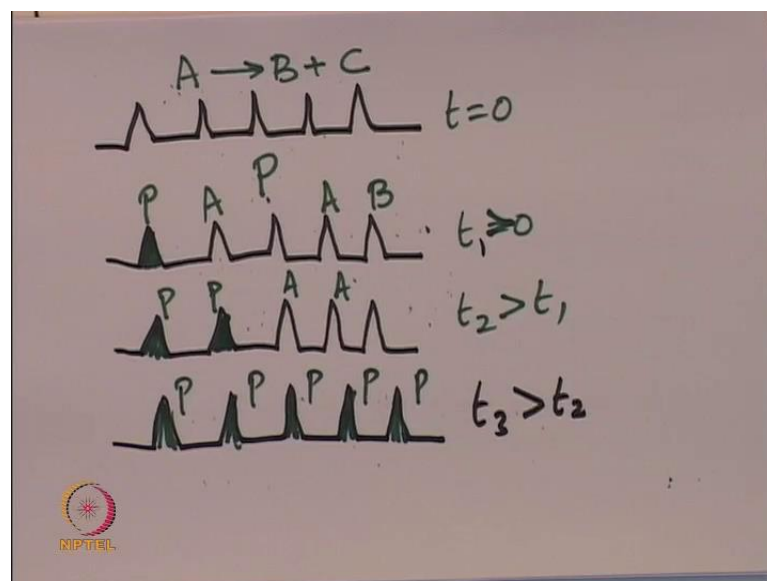 A → B + C
t=0
P A P A B
t₁>0
P P A A
t₂>t₁
P P P P P
t₃>t₂
NPTEL